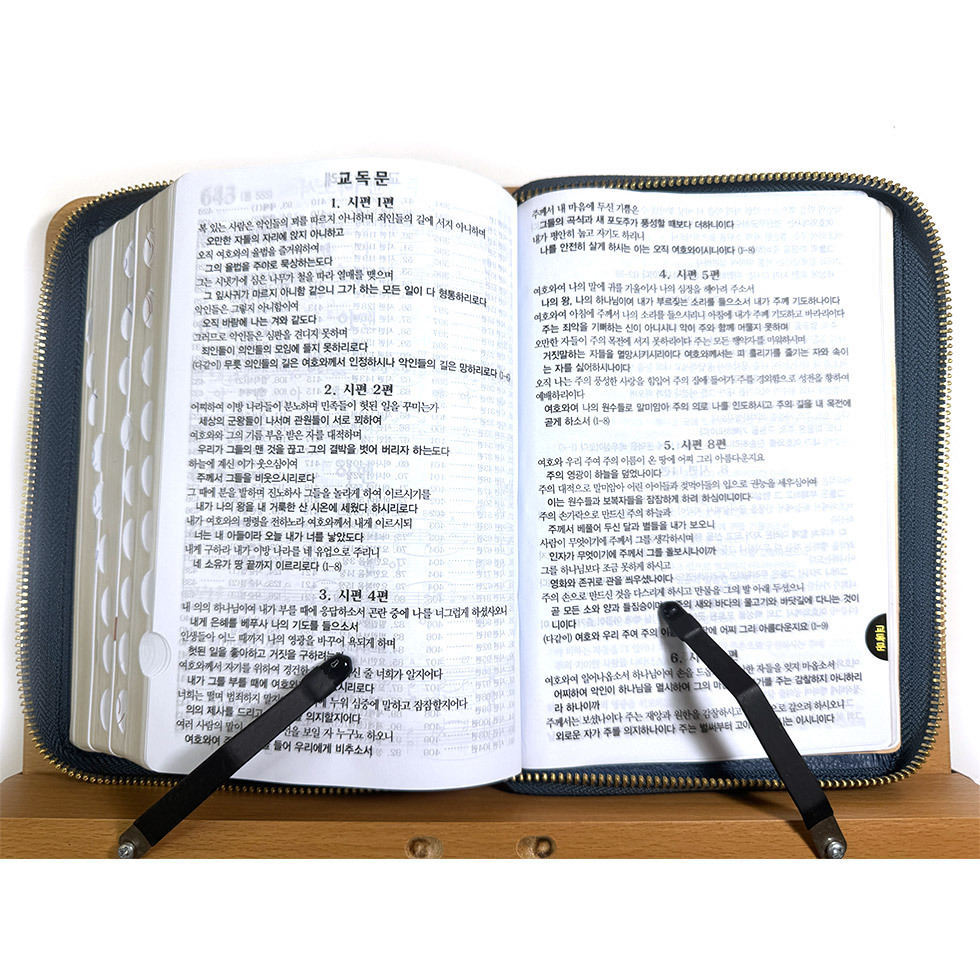 교독문
1. 시편 1편
복 있는 사람은 악인들의 꾀를 따르지 아니하며 죄인들의 길에 서지 아니하며
오만한 자들의 자리에 앉지 아니하고
오직 여호와의 율법을 즐거워하여
그의 율법을 주야로 묵상하는도다
그는 시냇가에 심은 나무가 철을 따라 열매를 맺으며
그 잎사귀가 마르지 아니함 같으니 그가 하는 모든 일이 다 형통하리로다
악인들은 그렇지 아니함이여
오직 바람에 나는 겨와 같도다
그러므로 악인들은 심판을 견디지 못하며
죄인들이 의인들의 모임에 들지 못하리로다
(다같이) 무릇 의인들의 길은 여호와께서 인정하시나 악인들의 길은 망하리로다 (1-6)
2. 시편 2편
어찌하여 이방 나라들이 분노하며 민족들이 헛된 일을 꾸미는가
세상의 군왕들이 나서며 관원들이 서로 꾀하여
여호와와 그의 기름 부음 받은 자를 대적하며
우리가 그들의 맨 것을 끊고 그의 결박을 벗어 버리자 하는도다
하늘에 계신 이가 웃으심이여
주께서 그들을 비웃으시리로다
그 때에 분을 발하며 진노하사 그들을 놀라게 하여 이르시기를
내가 나의 왕을 내 거룩한 산 시온에 세웠다 하시리로다
내가 여호와의 명령을 전하노라 여호와께서 내게 이르시되
너는 내 아들이라 오늘 내가 너를 낳았도다
내게 구하라 내가 이방 나라를 네 유업으로 주리니
네 소유가 땅 끝까지 이르리로다 (1-8)
3. 시편 4편
내 의의 하나님이여 내가 부를 때에 응답하소서 곤란 중에 나를 너그럽게 하셨사오니
내게 은혜를 베푸사 나의 기도를 들으소서
인생들아 어느 때까지 나의 영광을 바꾸어 욕되게 하며
헛된 일을 좋아하고 거짓을 구하려는
여호와께서 자기를 위하여 경건한 줄 너희가 알지어다
내가 그를 부를 때에 여호와 시리로다
너희는 떨며 범죄하지 말지 누워 심중에 말하고 잠잠할지어다
의의 제사를 드리고 의지할지어다
여러 사람의 말이 보일 자 누구뇨 하오니
여호와여 들어 우리에게 비추소서
주께서 내 마음에 두신 기쁨은
그들의 곡식과 새 포도주가 풍성할 때보다 더하니이다
내가 평안히 눕고 자기도 하리니
나를 안전히 살게 하시는 이는 오직 여호와이시니이다 (1-8)
4. 시편 5편
여호와여 나의 말에 귀를 기울이사 나의 심정을 헤아려 주소서
나의 왕, 나의 하나님이여 내가 부르짖는 소리를 들으소서 내가 주께 기도하나이다
여호와여 아침에 주께서 나의 소리를 들으시리니 아침에 내가 주께 기도하고 바라리이다
주는 죄악을 기뻐하는 신이 아니시니 악이 주와 함께 머물지 못하며
오만한 자들이 주의 목전에 서지 못하리이다 주는 모든 행악자를 미워하시며
거짓말하는 자들을 멸망시키시리이다 여호와께서는 피 흘리기를 즐기는 자와 속이
는 자를 싫어하시나이다
오직 나는 주의 풍성한 사랑을 힘입어 주의 집에 들어가 주를 경외함으로 성전을 향하여
예배하리이다
여호와여 나의 원수들로 말미암아 주의 의로 나를 인도하시고 주의 길을 내 목전에
곧게 하소서 (1-8)
5. 시편 8편
여호와 우리 주여 주의 이름이 온 땅에 어찌 그리 아름다운지요
주의 영광이 하늘을 덮었나이다
주의 대적으로 말미암아 어린 아이들과 젖먹이들의 입으로 권능을 세우심이여
이는 원수들과 보복자들을 잠잠하게 하려 하심이니이다
주의 손가락으로 만드신 주의 하늘과
주께서 베풀어 두신 달과 별들을 내가 보오니
사람이 무엇이기에 주께서 그를 생각하시며
인자가 무엇이기에 주께서 그를 돌보시나이까
그를 하나님보다 조금 못하게 하시고
영화와 존귀로 관을 씌우셨나이다
주의 손으로 만드신 것을 다스리게 하시고 만물을 그의 발 아래 두셨으니
곧 모든 소와 양과 들짐승이며 새와 바다의 물고기와 바닷길에 다니는 것이
니이다
(다같이) 여호와 우리 주여 주의 이름 땅에 어찌 그리 아름다운지요 (1-9)
6. 편
여호와여 일어나옵소서 하나님이여 손을 드옵 자들을 잊지 마옵소서
어찌하여 악인이 하나님을 멸시하여 그의 마 주는 감찰하지 아니하리
라 하나이까
주께서는 보셨나이다 주는 재앙과 원한을 감찰하시고 으로 갚으려 하시오니
외로운 자가 주를 의지하나이다 주는 벌써부터 고아 는 이시니이다
교독문